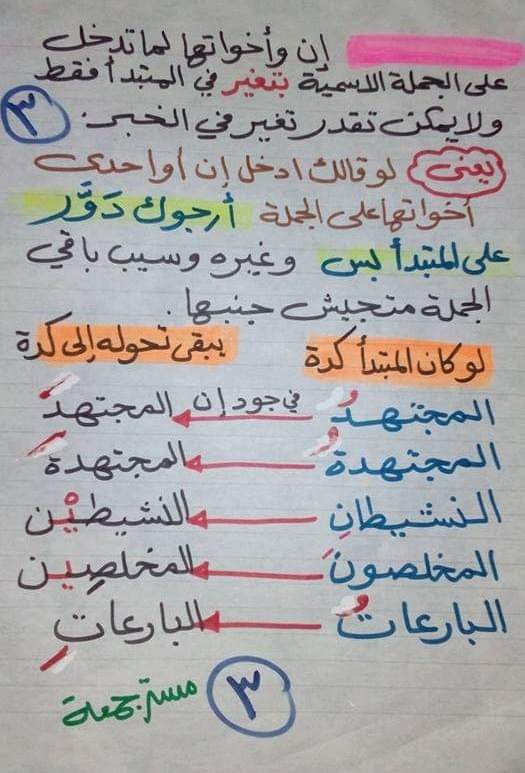 إن وأخواتها لما تدخل
على الجملة الاسمية بتغير في المبتدأ فقط
ولا يمكن تقدر تغير في الخبر. ٣
يعنى لو قالك ادخل إن أو احدى
أخواتها على الجملة أرجوك دَوَّر
على المبتدأ بس وغيره وسيب باقي
الجملة متجيش جنبها.
لو كان المبتدأ كدة يبقى تحوله إلى كدة
المجتهدُ في جود إن المجتهدَ
المجتهدةُ المجتهدةَ
النشيطانِ النشيطيْن
المخلصونَ المخلصِين
البارعاتُ البارعاتِ
٣ مستر جمعة